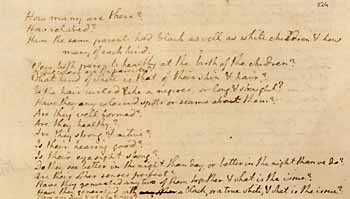 324
How many are there?
How related?
Have the same parents had black as well as white children & how
many of each kind.
were both parents healthy at the birth of the children?
what kind of white is that of their skin & hair?
Is the hair curled like a negroes, or long & straight?
Have they any coloured spots or seams about them?
Are they well formed?
Are they healthy?
Are they strong & active?
Is their hearing good?
Is their eyesight strong?
Do they see better in the night than day, or better in the night than we do?
are their other senses perfect?
Have they generated any two of them together & what is the issue?
Have they generated with a black, or a true white, & what is the issue?